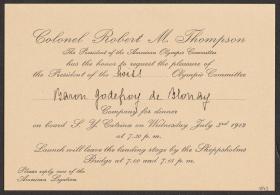 Colonel Robert M. Thompson
The President of the American Olympic Committee
has the honor to request the pleasure of
the President of the Swiss Olympic Committee
Baron Godefroy de Blonay
Company for dinner
on board S. Y. Catrina on Wednesday July 3rd 1912
at 7.30 p.m.
Launch will leave the landing stage by the Skeppsholms
Bridge at 7.00 and 7.15 p.m.
Please reply care of the
American Legation